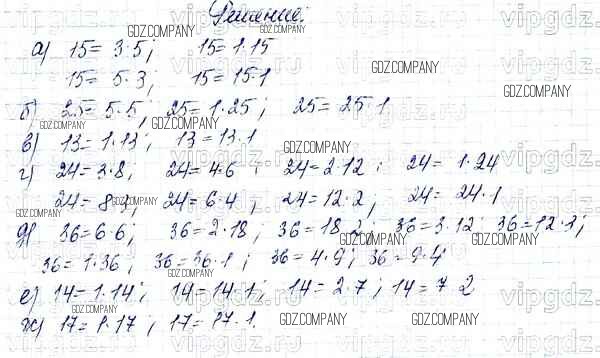 Решение:
а) 15 = 3·5; 15 = 1·15
15 = 5·3; 15 = 15·1
б) 25 = 5·5; 25 = 1·25; 25 = 25·1
в) 13 = 1·13; 13 = 13·1
г) 24 = 3·8; 24 = 4·6; 24 = 2·12; 24 = 1·24
24 = 8·3; 24 = 6·4; 24 = 12·2; 24 = 24·1
д) 36 = 6·6; 36 = 2·18; 36 = 18·2; 36 = 3·12; 36 = 12·3;
36 = 1·36; 36 = 36·1; 36 = 4·9; 36 = 9·4
е) 14 = 1·14; 14 = 14·1; 14 = 2·7; 14 = 7·2
ж) 17 = 1·17; 17 = 17·1.